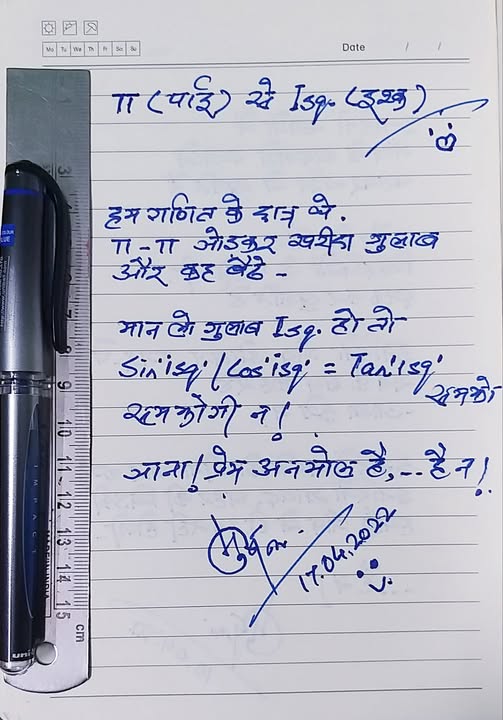 Mo Tu We Th Fr Sa Su
Date / /
π (पाई) से Isq. (इश्क)
हम गणित के छात्र थे.
π-π जोडकर खरीदा गुलाब
और कह बैठे -
मान लो गुलाब Isq. हो तो
Sin isq / Cos isq = Tan isq
समझो
समझोगी न!
जाना! प्रेम अनमोल है, -- है न!
17.04.2022
3
7
8
9
10
11
12
13
14
15
cm
IMPACT
uni